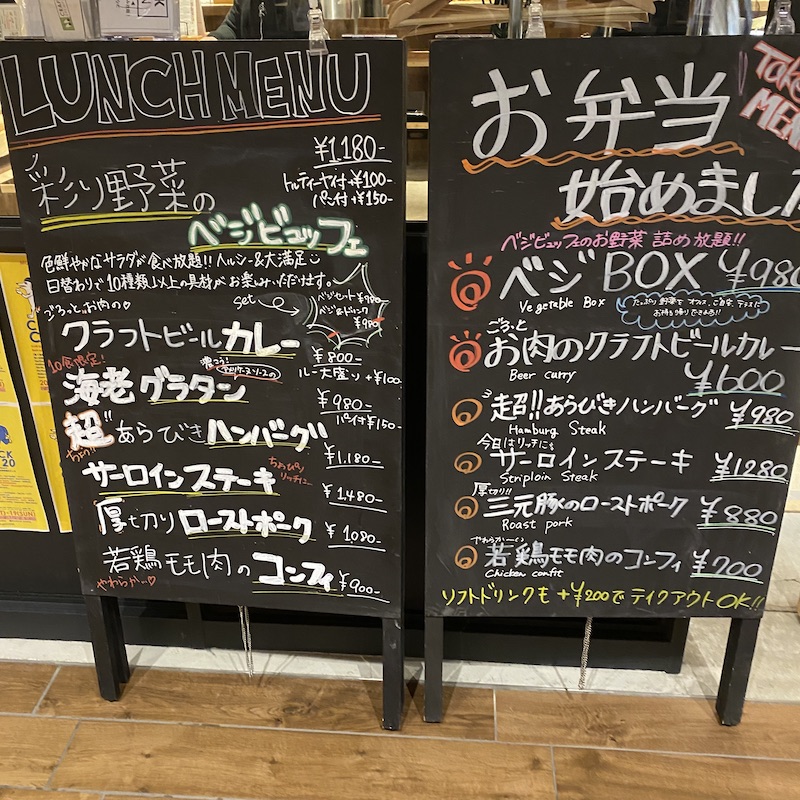 LUNCH MENU
¥1,180-
トルティーヤ付+¥100-
パン付+¥150-
彩り野菜の
ベジビュッフェ
色鮮やかなサラダが食べ放題!!ヘルシー&大満足
日替わりで10種類以上の具材がお楽しみいただけます。
set
ベジセット¥980
ベジ&ドリンク
¥980
ごろっとお肉の
クラフトビールカレー
¥800-
ルー大盛り+¥100-
10食限定!
海老グラタン
¥980-
パイ付¥150-
超あらびきハンバーグ
ちょう!!
¥1,180-
サーロインステーキ
ちょぴり
リッチに
¥1,480-
厚切りローストポーク
¥1080-
若鶏モモ肉のコンフィ
¥900-
やわらか
Take
MENU
お弁当
始めました
ベジビュッフェのお野菜 詰め放題!!
ベジBOX ¥980
Vegetable Box
たっぷり野菜で オフィス、ご自宅、テラスに
お持ち帰りできます!!
ごろっと
お肉のクラフトビールカレー
Beer curry
¥600
超!!あらびきハンバーグ ¥980
Hamburg Steak
今日はリッチにも
サーロインステーキ ¥1280
Striploin Steak
厚切り!!
三元豚のローストポーク ¥880
Roast pork
やわらか〜い
若鶏モモ肉のコンフィ ¥700
Chicken confit
ソフトドリンクも +¥200で テイクアウトOK!!